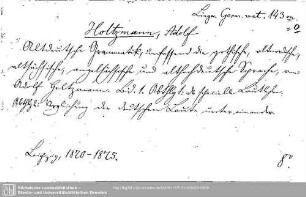 Ling. Germ. vet. 143
Holtzmann, Adolf
Altdeutsche Grammatik, umfassend die gothische, altnordische,
altsächsische, angelsächsische und althochdeutsche Sprache, von
Adolf Holtzmann. Bd. 1. Abthlg. 1. die specielle Lautlehre.
Abthlg. 2. Vergleichung der deutschen Laute unter einander.
Leipzig, 1870-1875. 8°
Sächsische Landesbibliothek -
Staats- und Universitätsbibliothek Dresden